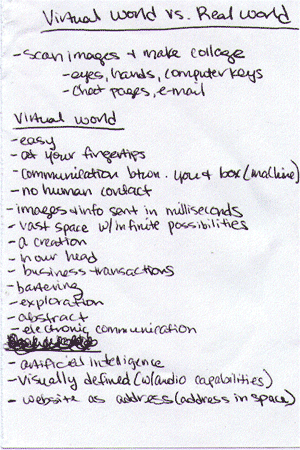 Virtual World vs. Real World
- scan images + make collage
- eyes, hands, computer keys
- chat pages, e-mail
Virtual World
- easy
- at your fingertips
- communication btwn. you + box (machine)
- no human contact
- images + info sent in milliseconds
- vast space w/ infinite possibilities
- a creation
- in our head
- business transactions
- bartering
- exploration
- abstract
- electronic communication
- artificial intelligence
- visually defined (w/audio capabilities)
- website as address (address in space)